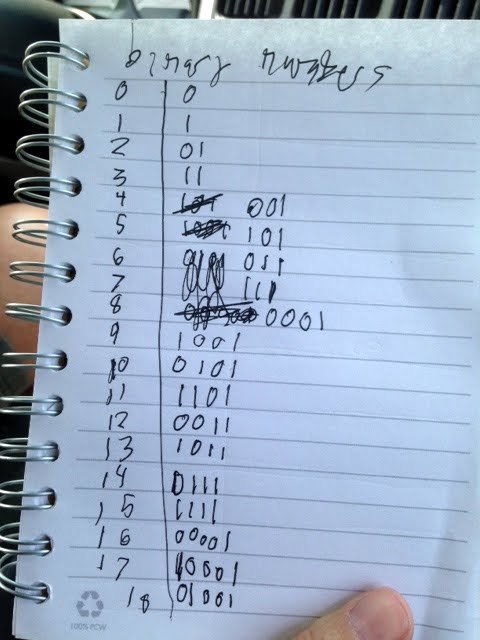 Binary numbers
0 0
1 1
2 01
3 11
4 001
5 101
6 011
7 111
8 0001
9 1001
10 0101
11 1101
12 0011
13 1011
14 0111
15 1111
16 00001
17 10001
18 01001
100% PCW